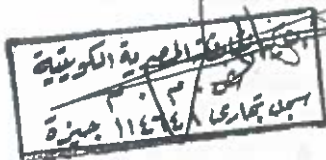 المصرية الكويتية
ش . م . م
سجل تجارى ١١٤٦٤ جيزة